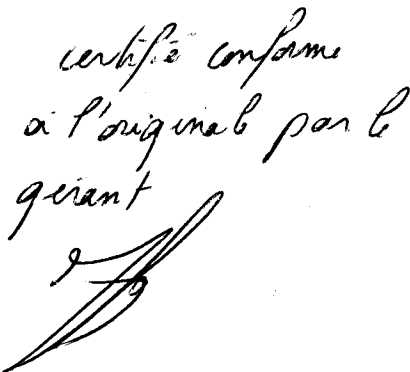 certifié conforme
à l'original par le
gérant